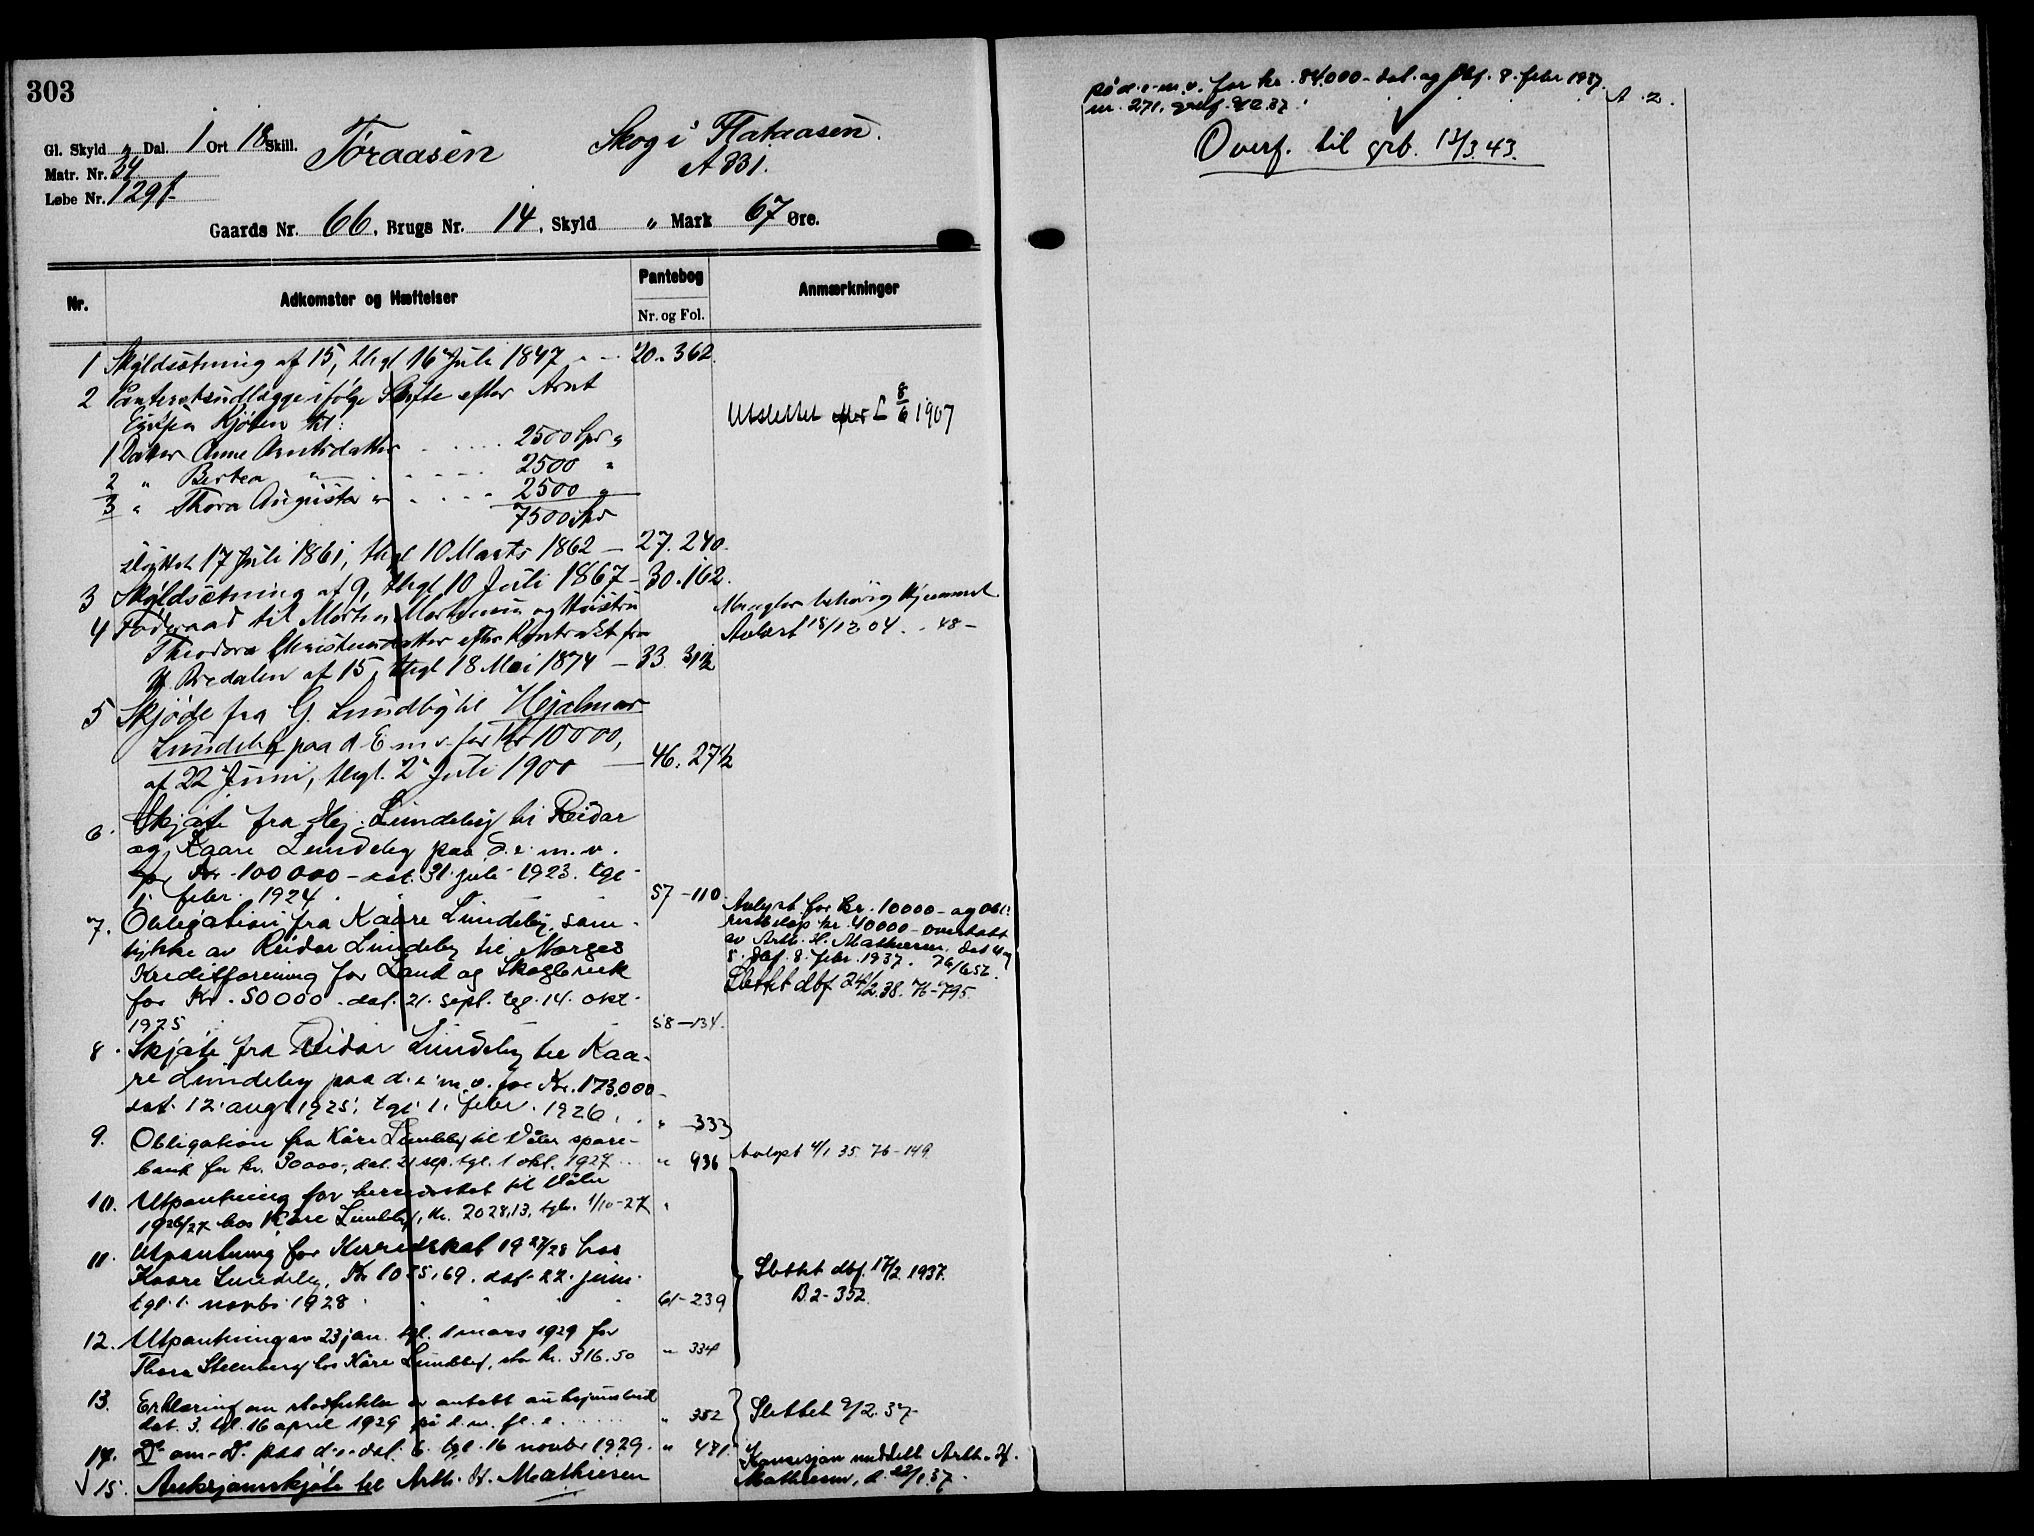 303
Gl. Skyld " Dal. 1 Ort 18 Skill.
Matr. Nr. 34
Løbe Nr. 129f
Toraasen
Skog i Flataasen.
A 331.
Gaards Nr. 66, Brugs Nr. 14, Skyld " Mark 67 Øre.
Nr.
Adkomster og Hæftelser
Pantebog
Nr. og Fol.
Anmærkninger
1 Skyldsætning af 15, thgl 16 Juli 1847 - - 20. 362.
2 Panteretsudlægge ifølge Skifte efter Arnt
Kjölen til:
Utslettet efter L 8/6 1907
1 Datter Anne Arntsdatter 2500 Spd "
2 " Berthea " 2500 "
3 " Thora Augusta " 2500 "
7500 Spd
sluttet 17 Juli 1861, thgl 10 Marts 1862 — 27. 240.
3 Skyldsætning af 9, thgl 10 Juli 1867 - 30. 162.
4 Föderaad til Morten Mortensen og Hustru
Theodora Christensdatter efter Kontrakt fra
Bredalen af 15, thgl 18 Mai 1874 — 33 312
Mangler behörig Hjemmel
Avlæst 18/12 04. - 48 -
5 Skjöde fra G. Lundby til Hjalmar
Lundeby paa d. E. m. v. for Kr 10000,
af 22 Juni, thgl. 2 Juli 1900 — 46. 271/2
6. Skjøte fra Hj. Lundeby til Reidar
og Kaare Lundeby paa d. e. m. v.
for Kr. 100 000 - dat. 31 juli 1923. tgl.
1. febr. 1924. 57 - 110
7. Obligation fra Kaare Lundeby, sam-
tykke av Reidar Lundeby til Norges
Kreditforening for Land og Skogbruk
for Kr. 50000. dat. 21. sept. tgl. 14. okt.
1925 58 - 134.
Avlyst for kr. 10000 - og obl.
restbeløp kr. 40000 - overtatt
av Arth. H. Mathiesen. dat
dbf. 8. febr. 1937. 76/652.
Slettet dbf 24/2.38. 76-795.
8. Skjøte fra Reidar Lundeby til Kaa-
re Lundeby paa d. e. m. v. for Kr. 173.000 -
dat. 12. aug. 1925, tgl. 1. febr. 1926. " - 333
9. Obligation fra Kåre Lundeby til Våler spare-
bank for kr. 30000,- dat. 21 sep. tgl. 1 okt. 1927 " 936
Avlyst 4/1 35. 76-149
10. Utpantning for herredsskat til Våler
1926/27 hos Kåre Lundeby, kr. 2028,13. tglv. 1/10-27 "
11. Utpantning for Herredskat 1927/28 hos
Kaare Lundeby, Kr 1035,69. dat. 22. juni.
tgl. 1. novbr. 1928 61 - 239
Slettet dbf. 17/2 1937.
B.2 - 352.
12. Utpantning av 23 jan. tgl. 1 mars 1929 for
Thora Steenberg hos Kåre Lundeby, stor kr. 316.50 " 334
13. Erklæring om
dat. 3. tgl. 16 april 1929 på d. m. fl. e. " 382
Slettet 9/2.37.
14. Do om Do paa d. e. dat. 6. tgl. 16 novbr 1929. " 481.
15. Auksjonsskjøte til Arth. H. Mathiesen
Konsesjon meddelt Arth. H.
Mathiesen, d. 22/1.37.
på d. e. m. v. for kr. 84.000 - dat. og dbf. 8. febr 1937.
nr. 271. A. 2.
Overf. til grb. 13/3.43.